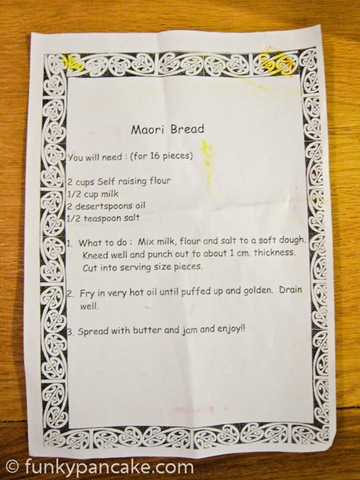 Maori Bread
You will need : (for 16 pieces)
2 cups Self raising flour
1/2 cup milk
2 desertspoons oil
1/2 teaspoon salt
1. What to do : Mix milk, flour and salt to a soft dough.
Kneed well and punch out to about 1 cm. thickness.
Cut into serving size pieces.
2. Fry in very hot oil until puffed up and golden. Drain
well.
3. Spread with butter and jam and enjoy!!
© funkypancake.com